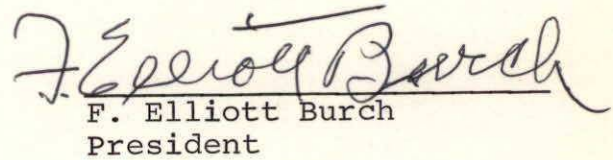 F. Elliott Burch
F. Elliott Burch
President